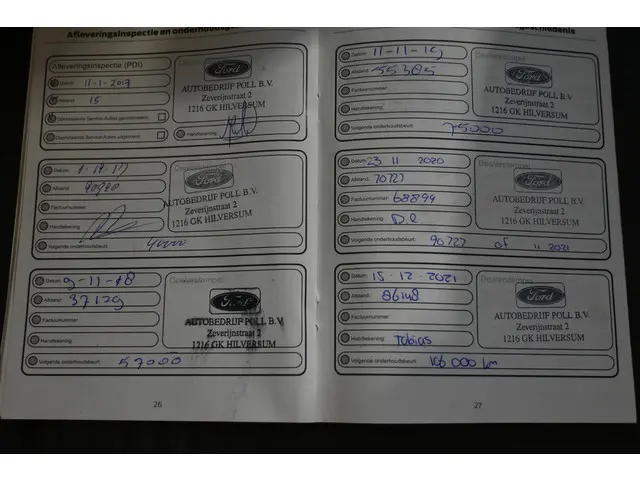 Afleveringsinspectie en
Afleveringsinspectie (PDI)
Datum: 11-1-2017
Afstand: 15
Handtekening:
Dealerstempel
Ford
AUTOBEDRIJF POLL B.V.
Zeverijnstraat 2
1216 GK HILVERSUM
Datum:
Afstand:
Factuurnummer:
Handtekening:
Volgende onderhoudsbeurt:
Ford
AUTOBEDRIJF POLL B.V.
Zeverijnstraat 2
1216 GK HILVERSUM
Datum: 9-11-18
Afstand: 37129
Factuurnummer:
Handtekening:
Volgende onderhoudsbeurt: 57000
Dealerstempel
Ford
AUTOBEDRIJF POLL B.V.
Zeverijnstraat 2
1216 GK HILVERSUM
26
Datum: 11-11-19
Afstand: 55385
Factuurnummer:
Handtekening:
Volgende onderhoudsbeurt: 75000
Ford
AUTOBEDRIJF POLL B.V.
Zeverijnstraat 2
1216 GK HILVERSUM
Datum: 23 11 2020
Afstand: 70727
Factuurnummer: 68899
Handtekening: D.R
Volgende onderhoudsbeurt: 90.727 of 11 2021
Dealerstempel
Ford
AUTOBEDRIJF POLL B.V.
Zeverijnstraat 2
1216 GK HILVERSUM
Datum: 15-12-2021
Afstand: 86148
Factuurnummer:
Handtekening: Tobias
Volgende onderhoudsbeurt: 106 000 km
Dealerstempel
Ford
AUTOBEDRIJF POLL B.V.
Zeverijnstraat 2
1216 GK HILVERSUM
27